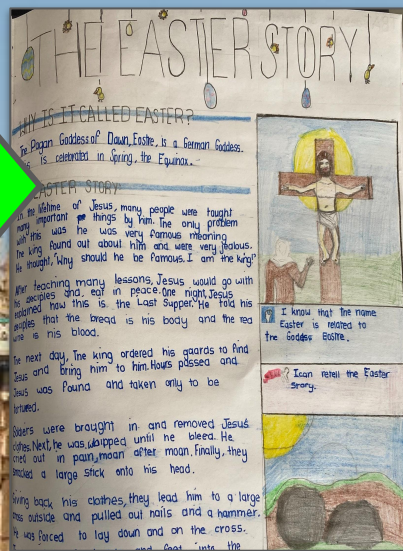 THE EASTER STORY!
WHY IS IT CALLED EASTER?
The Pagan Goddess of Dawn, Eostre, is a German Goddess.
is celebrated in Spring, the Equinox.
EASTER STORY
In the lifetime of Jesus, many people were taught
many important things by him. The only problem
with this was he was very famous meaning
The king found out about him and were very jealous.
He thought, "Why should he be famous. I am the king!"
After teaching many lessons, Jesus would go with
his deciples and, eat in peace. One night, Jesus
explained how this is the Last Supper. He told his
deciples that the bread is his body and the red
wine is his blood.
The next day, The king ordered his gaards to find
Jesus and bring him to him. Hours passed and
Jesus was found and taken only to be
tortured.
were brought in and removed Jesus
clothes. Next, he was whipped until he bleed. He
cried out in pain, moan after moan. Finally, they
smacked a large stick onto his head.
Giving back his clothes, they lead him to a large
cross outside and pulled out nails and a hammer.
He was forced to lay down and on the cross.
and feet into the
I know that the name
Easter is related to
the Goddess Eostre.
I can retell the Easter
Story.